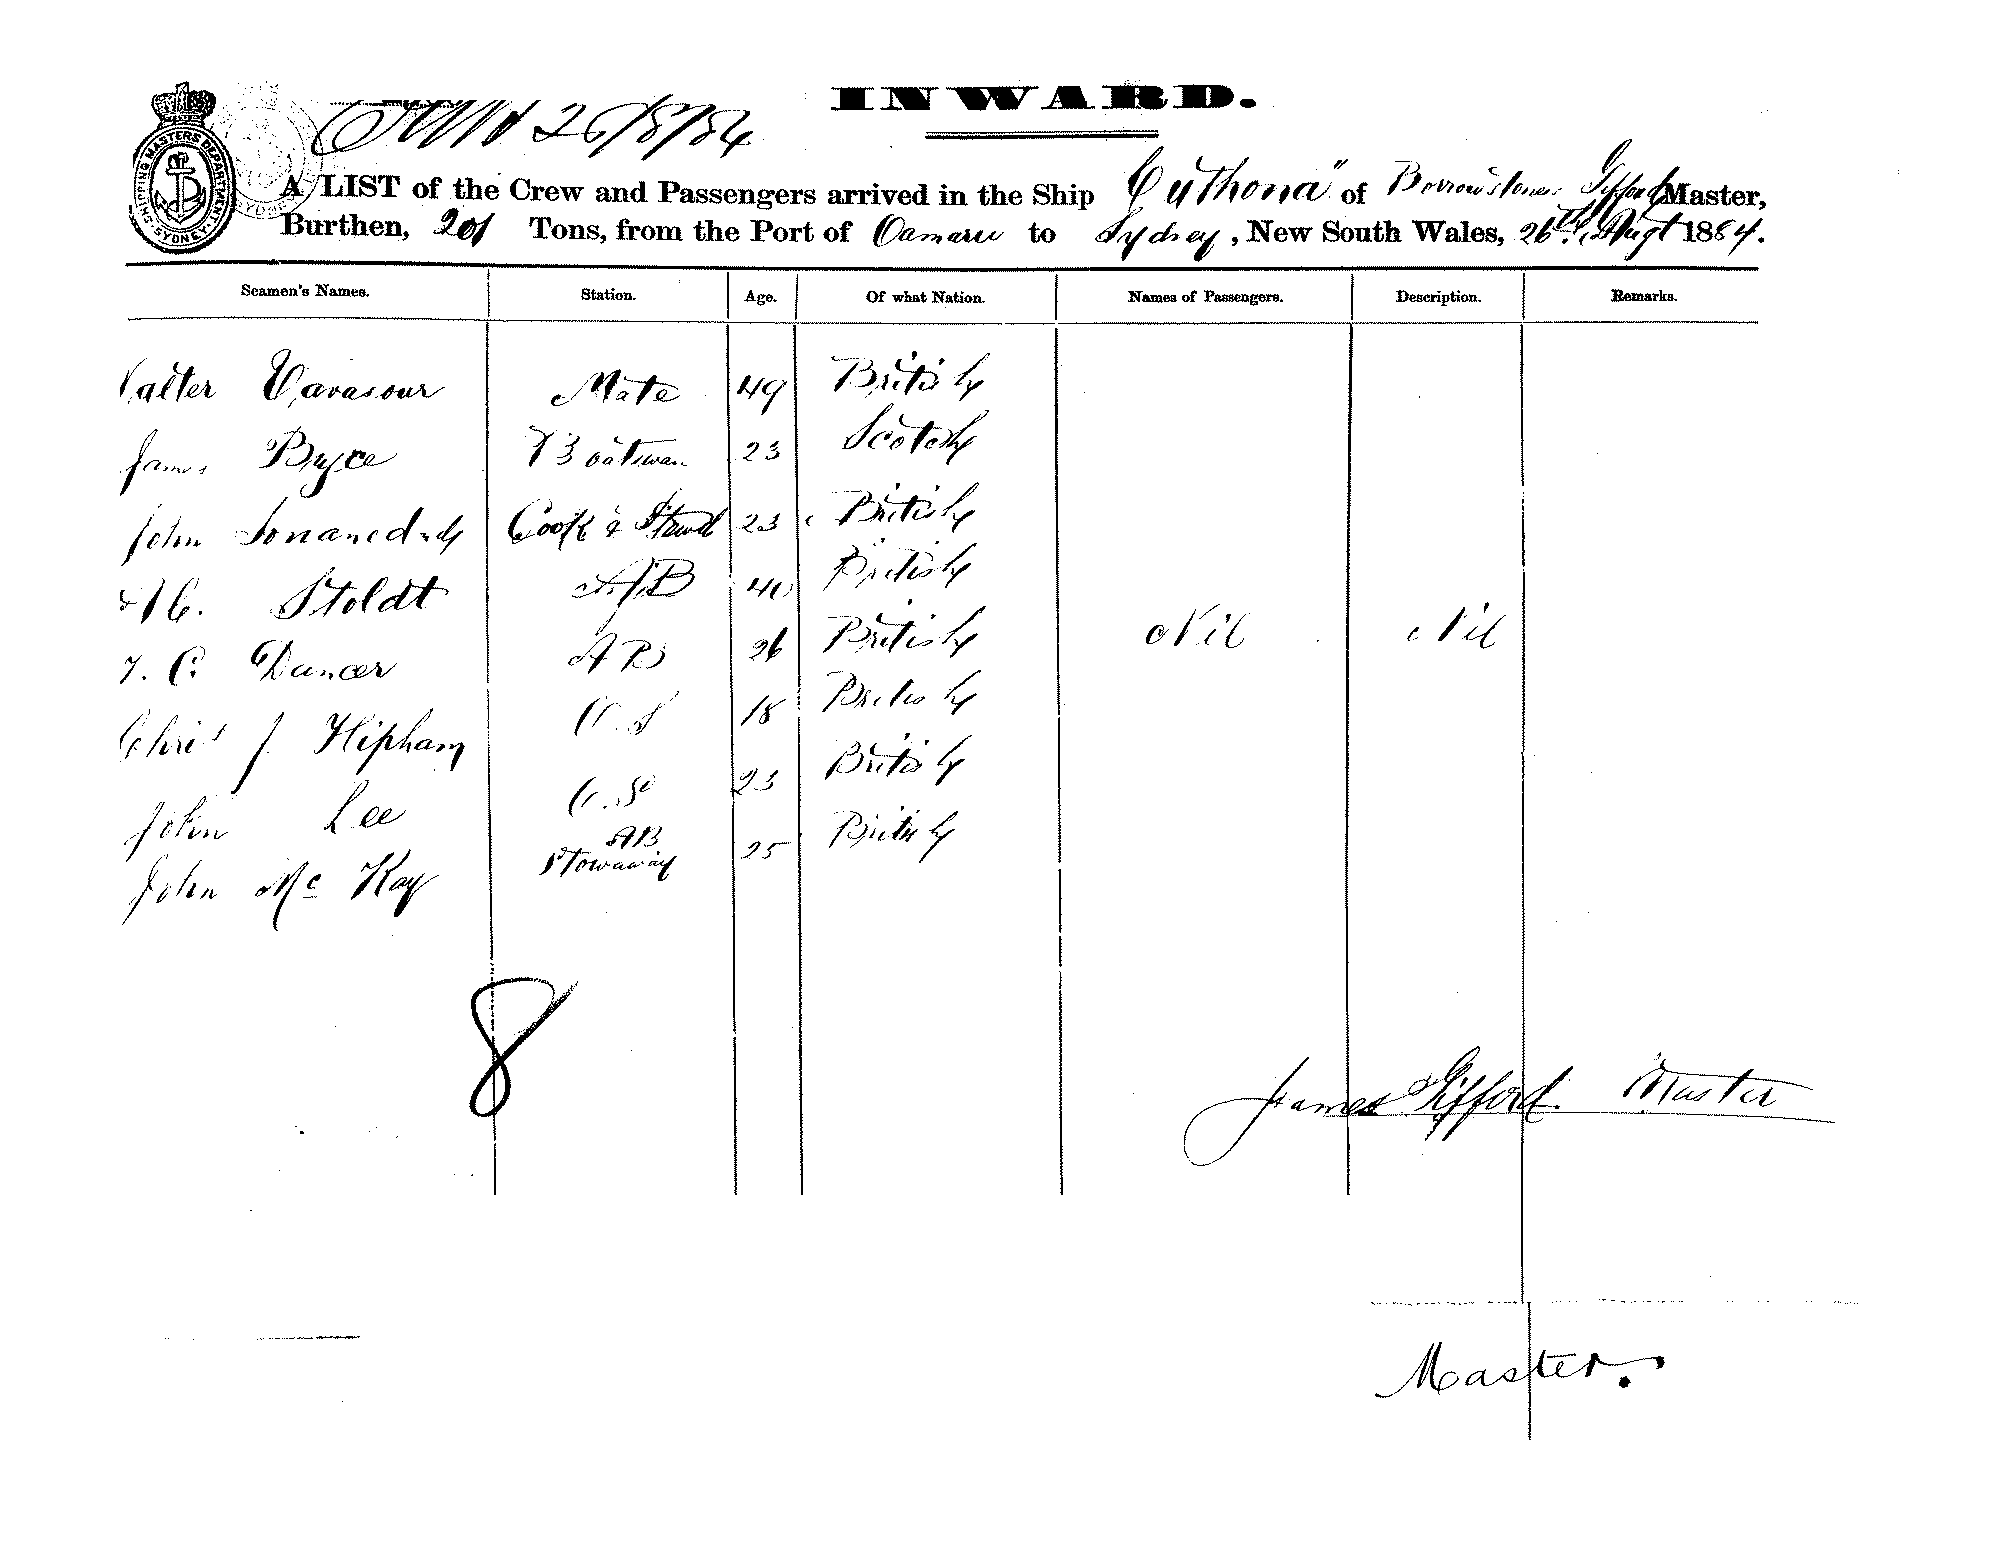 INWARD.
26/8/84
SHIPPING MASTERS DEPARTMENT SYDNEY
A LIST of the Crew and Passengers arrived in the Ship Cuthona" of Gifford Master,
Burthen, 201 Tons, from the Port of Oamaru to Sydney, New South Wales, 26th Augt 1884.
Seamen's Names. Station. Age. Of what Nation. Names of Passengers. Description. Remarks.
Vavasour Mate 49 British
James Bryce Boatswan 23 Scotch
John Cook & Stewd 23 British
Stoldt AB 40 British
C. Dancer AB 26 British Nil Nil
Chris J. Hipham O.S 18 British
John Lee O.S 23 British
John Mc Kay AB Stowaway 25 British
8
James Gifford Master
Master.